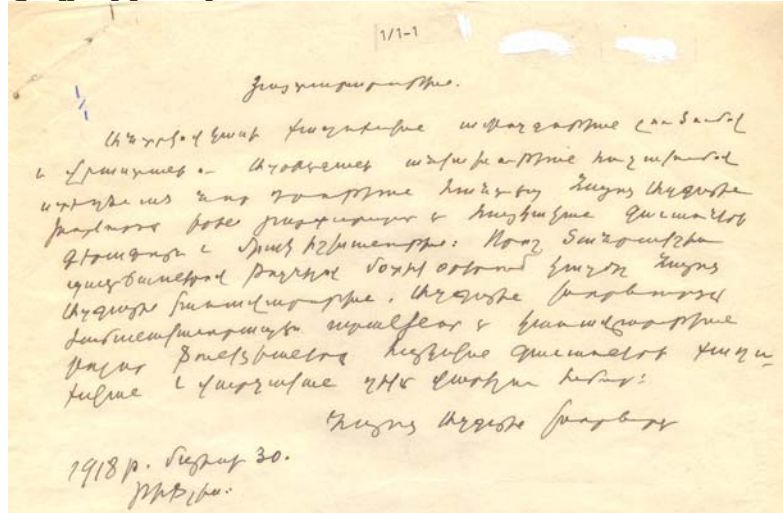 1/1-1
Յայտարարութիւն.
Անդրկովկասի քաղաքական ամբողջութեան լուծումով
և Վրաստանի և Ադրբեջանի անկախութեան հռչակումով
ստեղծուած նոր դրութեան հանդէպ Հայոց Ազգային
խորհուրդը իրեն յայտարարում է հայկական գաւառների
գերագոյն և միակ իշխանութիւն: Որոշ ծանրակշիռ
պատճառներով թողնելով մօտիկ օրերում կազմել Հայոց
Ազգային կառավարութիւն, Ազգային խորհուրդը
ժամանակաւորապէս ստանձնում է կառավարութեան
բոլոր ֆունկցիաները հայկական գաւառների քաղա-
քական և վարչական ղեկը վարելու համար:
Հայոց Ազգային խորհուրդ
1918 թ. մայիսի 30.
Թիֆլիս: